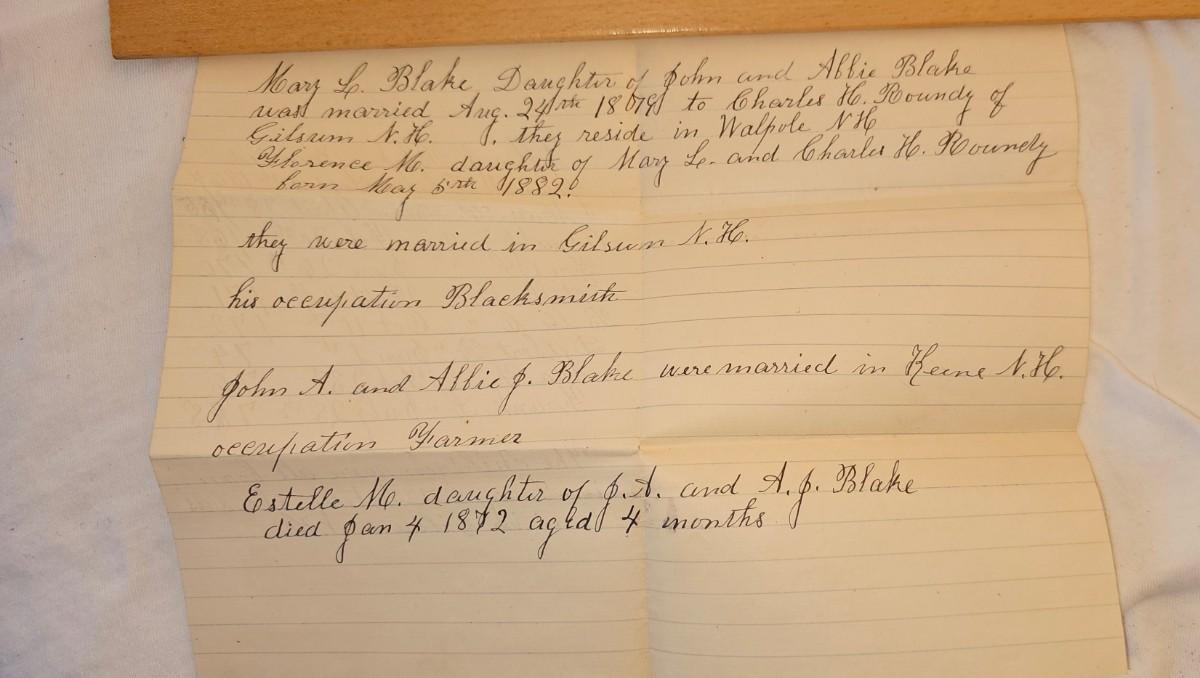 Mary L. Blake Daughter of John and Abbie Blake
was married Aug. 24th 1879 to Charles H. Roundy of
Gilsum N.H. , they reside in Walpole NH
Florence M. daughter of Mary L. and Charles H. Roundy
born May 5th 1882.
they were married in Gilsum N.H.
his occupation Blacksmith
John A. and Abbie J. Blake were married in Keene N.H.
occupation Farmer
Estelle M. daughter of J.A. and A.J. Blake
died Jan 4 1872 aged 4 months